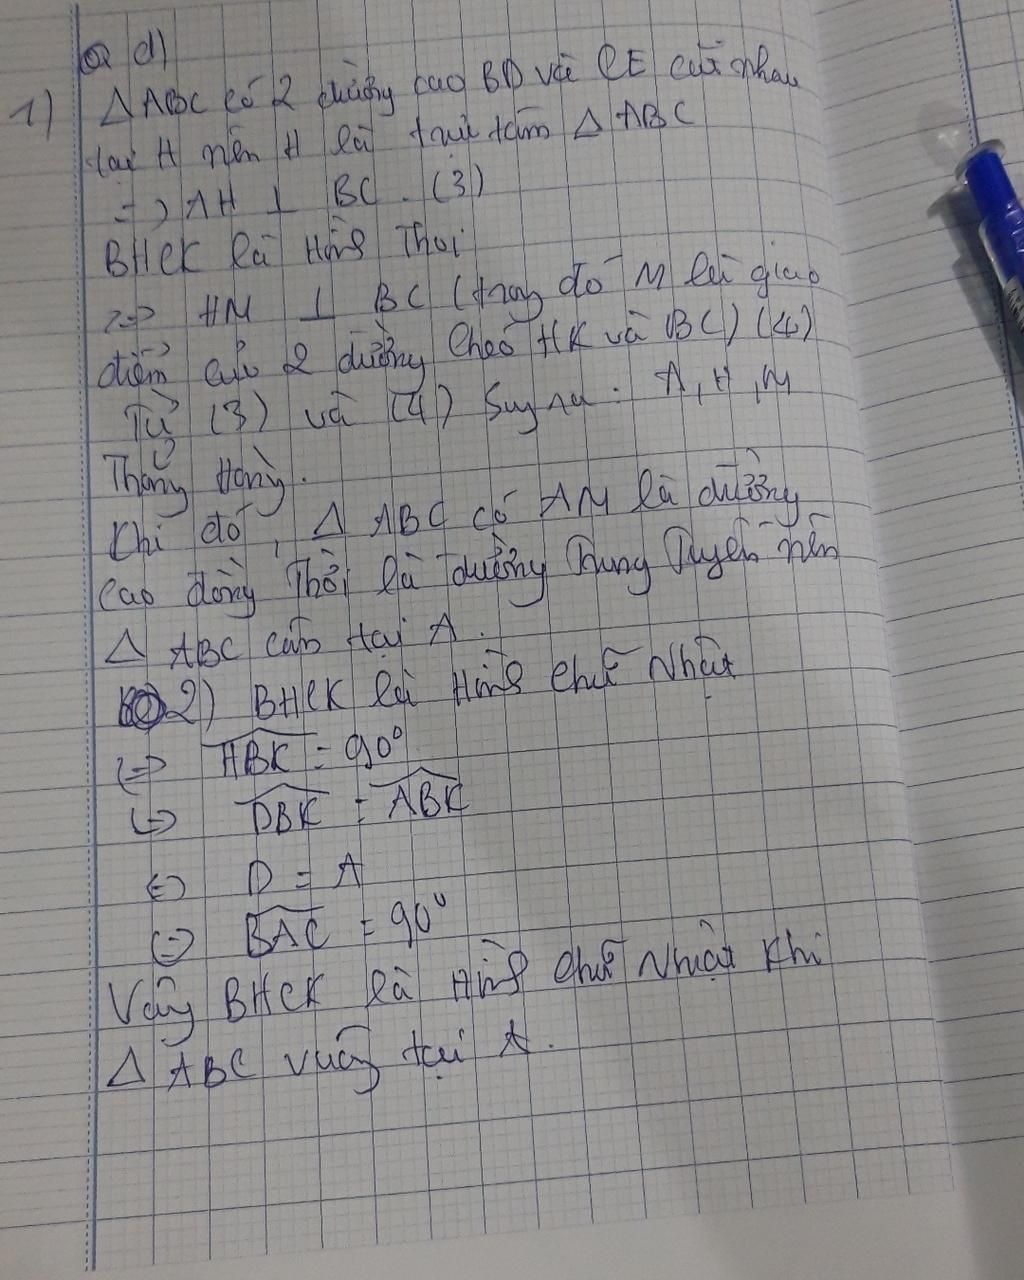 d)
1) Δ ABC có 2 đường cao BD và CE cắt nhau
tại H nên H là trực tâm Δ ABC
=> AH ⊥ BC . (3)
BHCK là Hình Thoi
=> HM ⊥ BC (trong đó M là giao
điểm của 2 đường chéo HK và BC) (4)
Từ (3) và (4) Suy ra : A, H, M
Thẳng Hàng.
Khi đó, Δ ABC có AM là đường
cao đồng Thời là đường Trung Tuyến nên
Δ ABC cân tại A.
2) BHCK là Hình chữ Nhật
<=> HBK = 90⁰
<=> DBK = ABK
<=> D = A
<=> BAC = 90⁰
Vậy BHCK là Hình chữ Nhật Khi
Δ ABC vuông tại A.